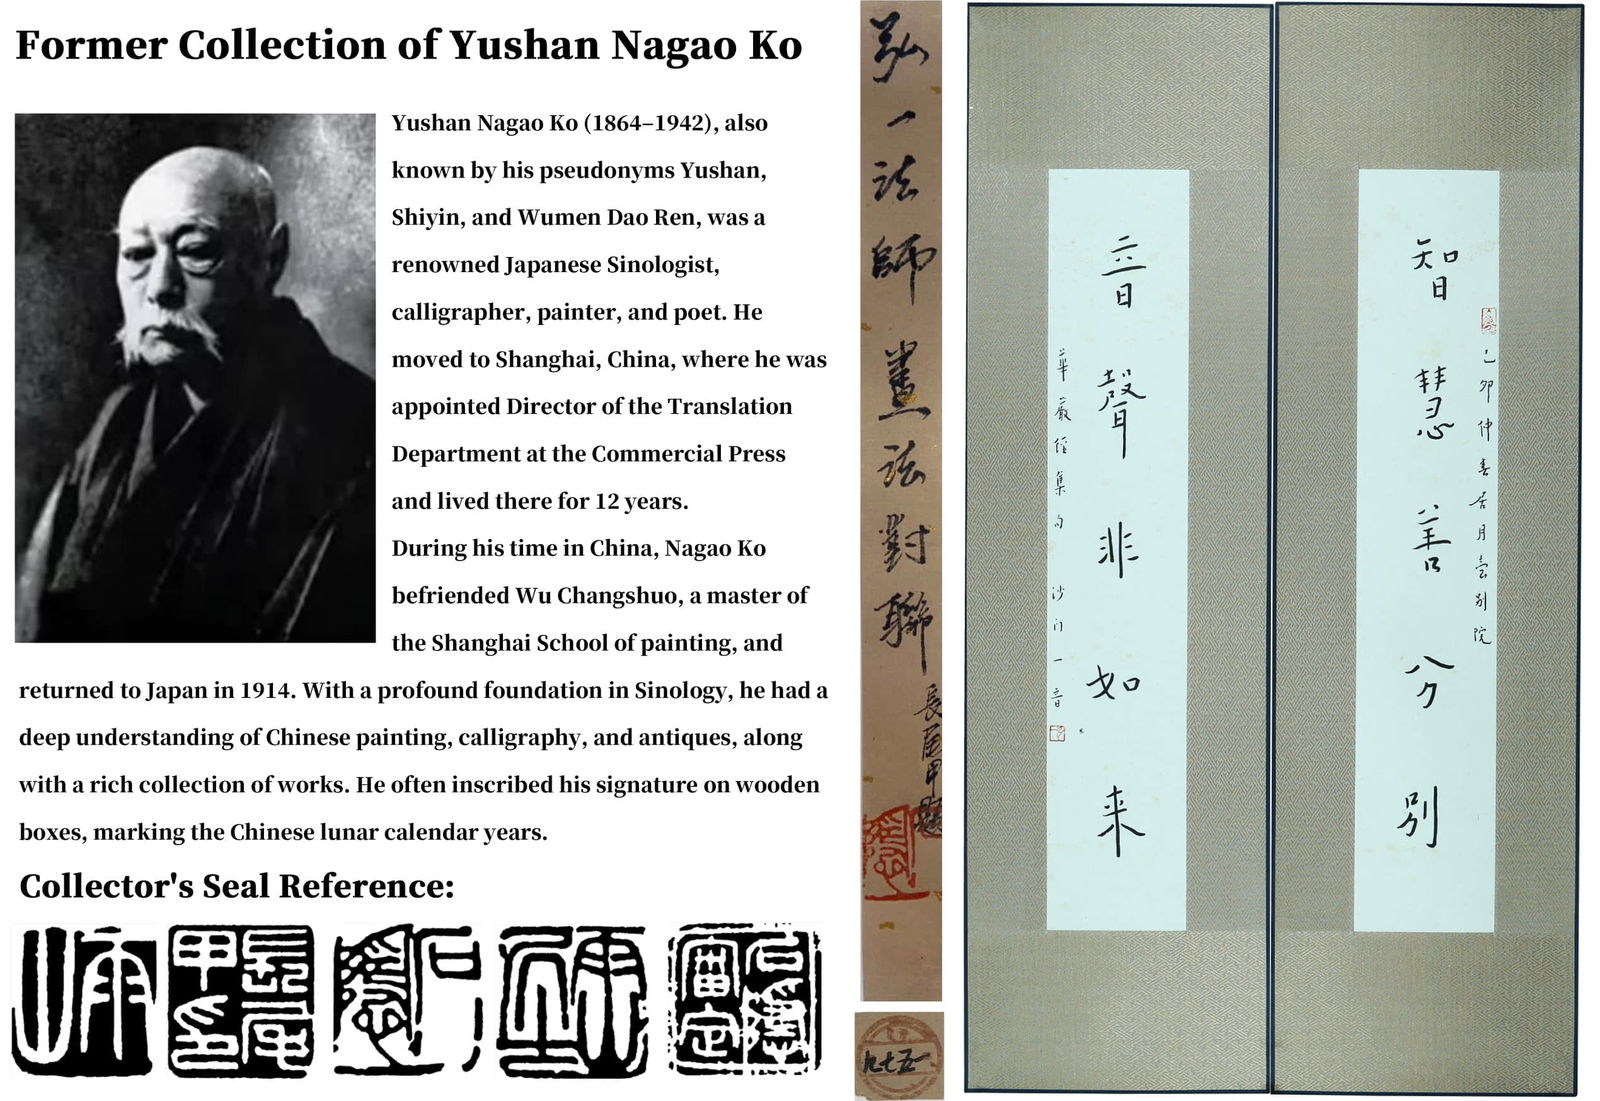 Former Collection of Yushan Nagao Ko
Yushan Nagao Ko (1864–1942), also
known by his pseudonyms Yushan,
Shiyin, and Wumen Dao Ren, was a
renowned Japanese Sinologist,
calligrapher, painter, and poet. He
moved to Shanghai, China, where he was
appointed Director of the Translation
Department at the Commercial Press
and lived there for 12 years.
During his time in China, Nagao Ko
befriended Wu Changshuo, a master of
the Shanghai School of painting, and
returned to Japan in 1914. With a profound foundation in Sinology, he had a
deep understanding of Chinese painting, calligraphy, and antiques, along
with a rich collection of works. He often inscribed his signature on wooden
boxes, marking the Chinese lunar calendar years.
Collector's Seal Reference:
弘一法師書法對聯
長尾甲題
九七五一
智慧善分別
己卯仲春居月臺別院
音聲非如来
華嚴經集句 沙门一音